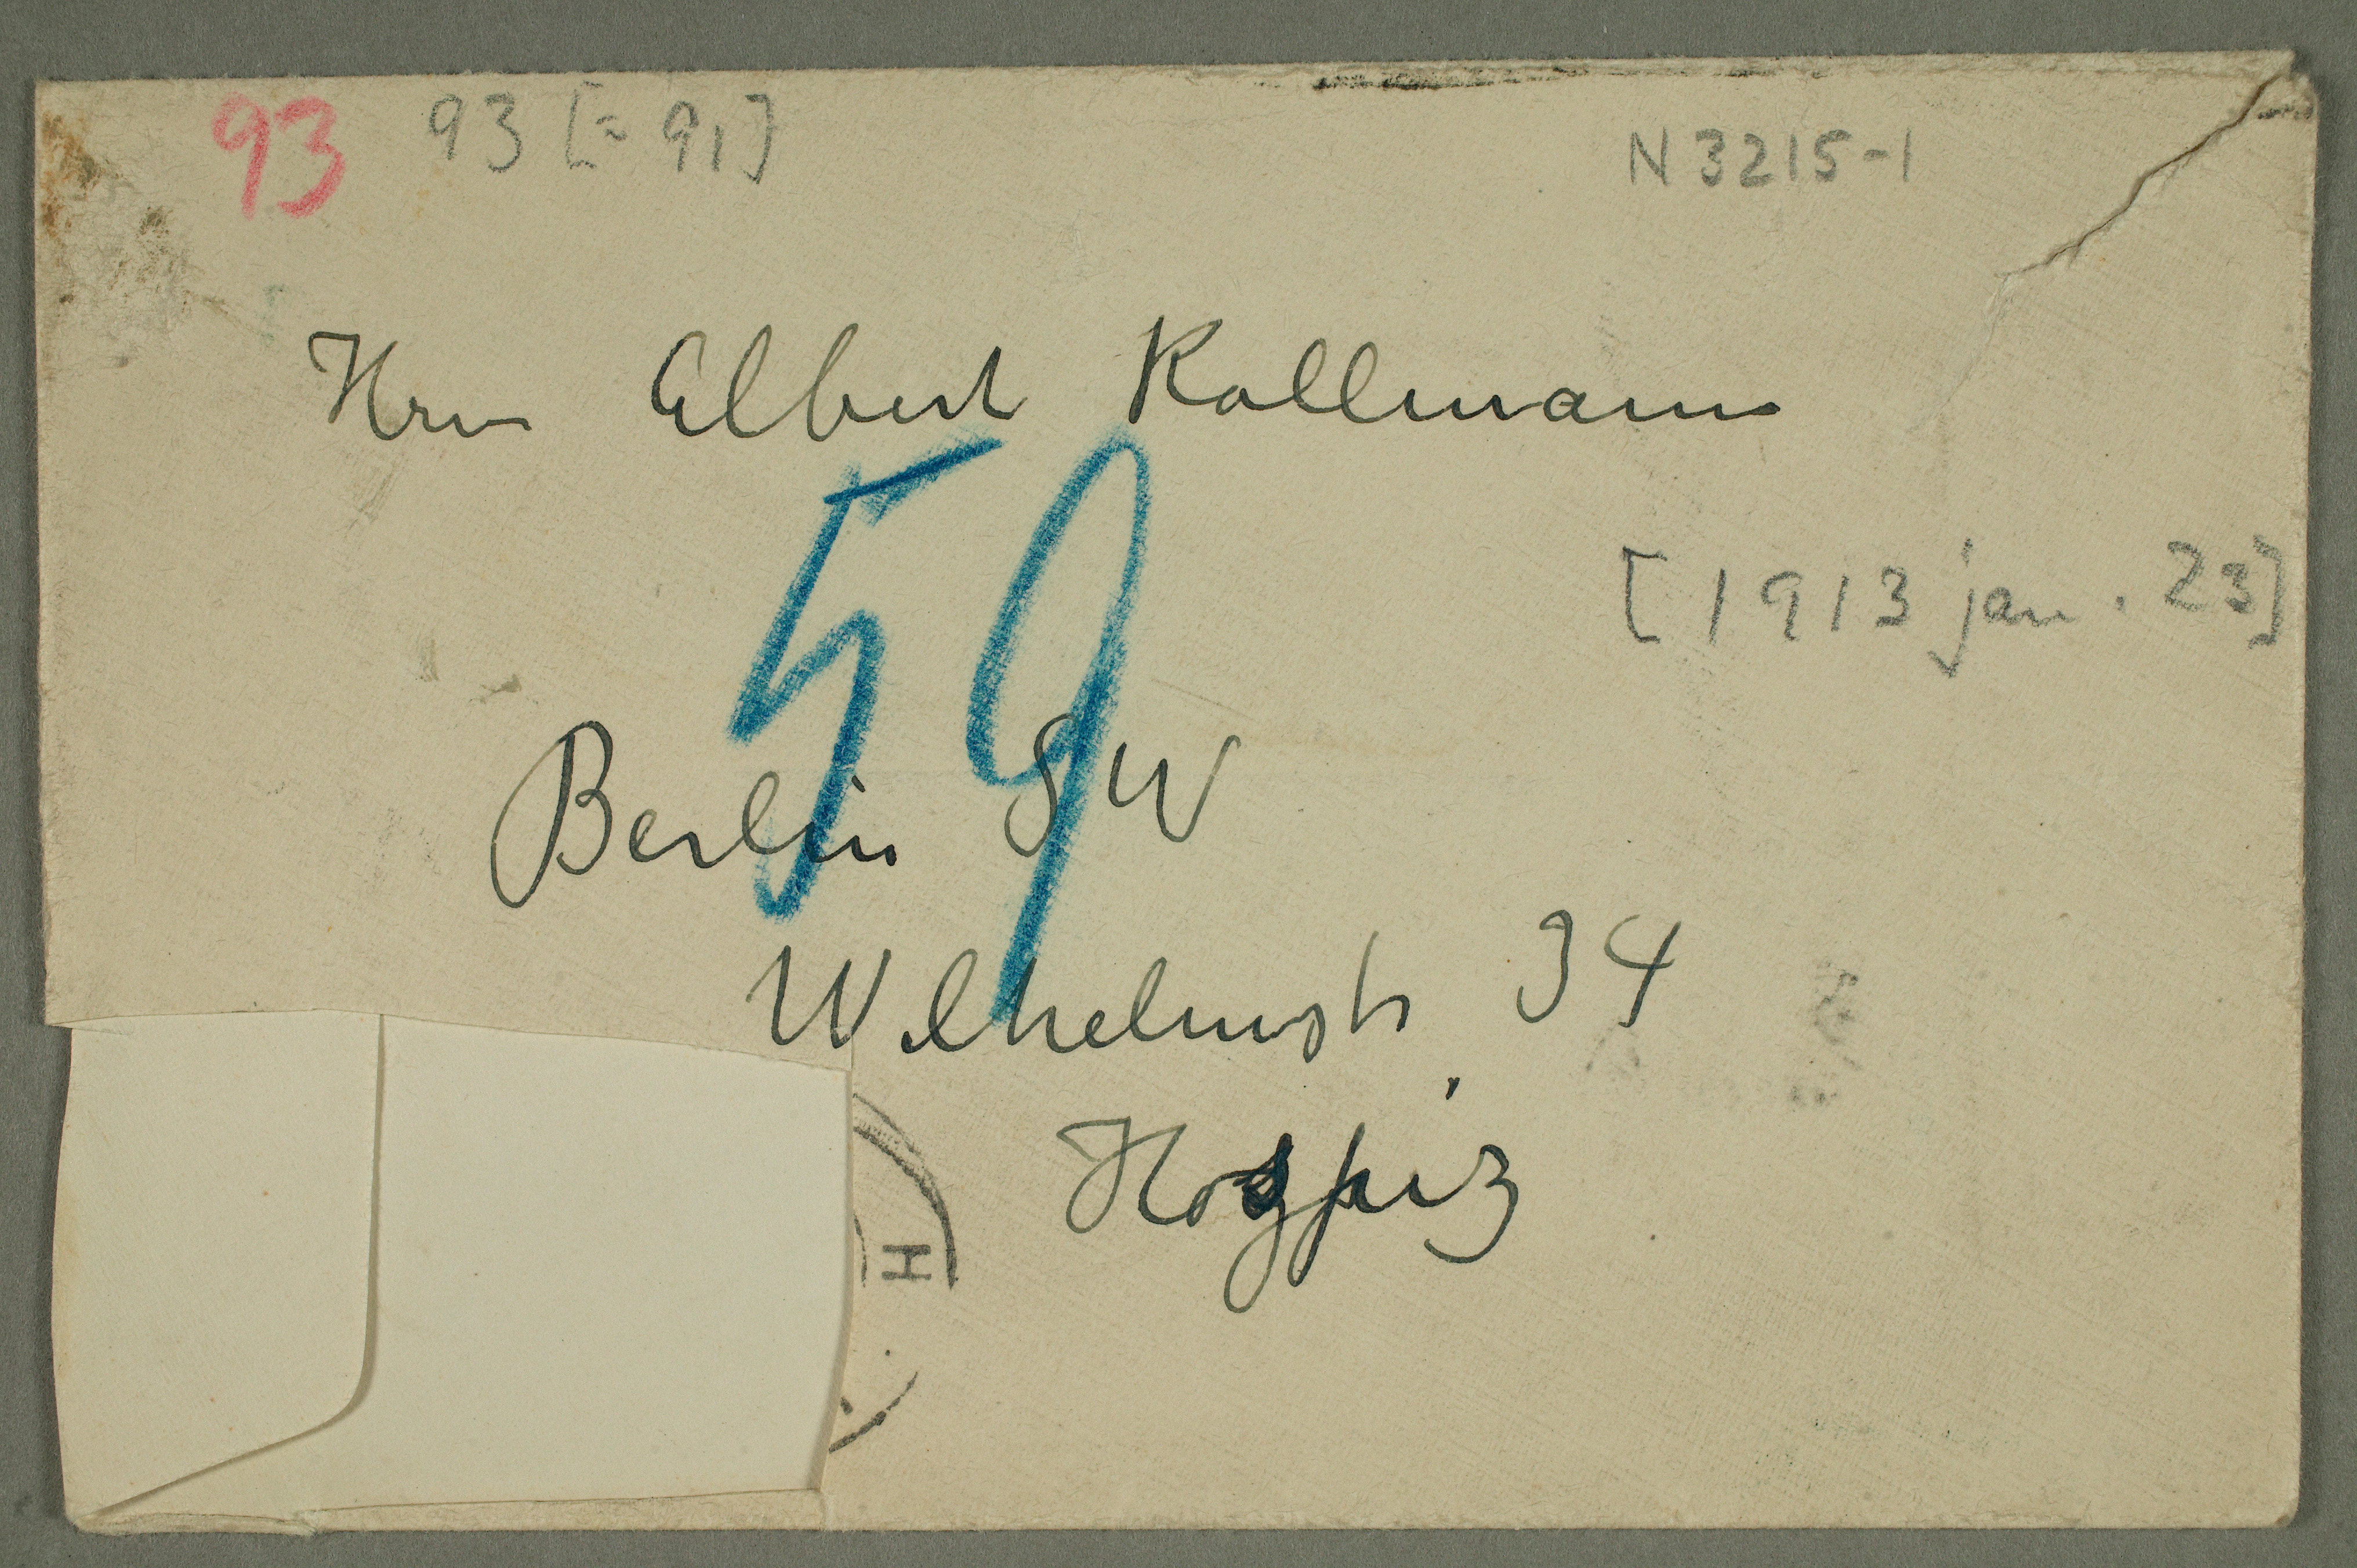 93 93 [= 91] N 3215-1
Hrn Albert Kollmann
59
[1913 jan. 23]
Berlin SW
Wilhelmstr 34
Hospiz
H